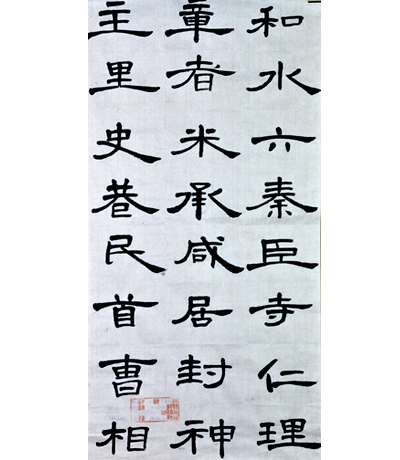 和水六秦臣寺仁理
章者米承咸居封神
主里史巷民首曹相